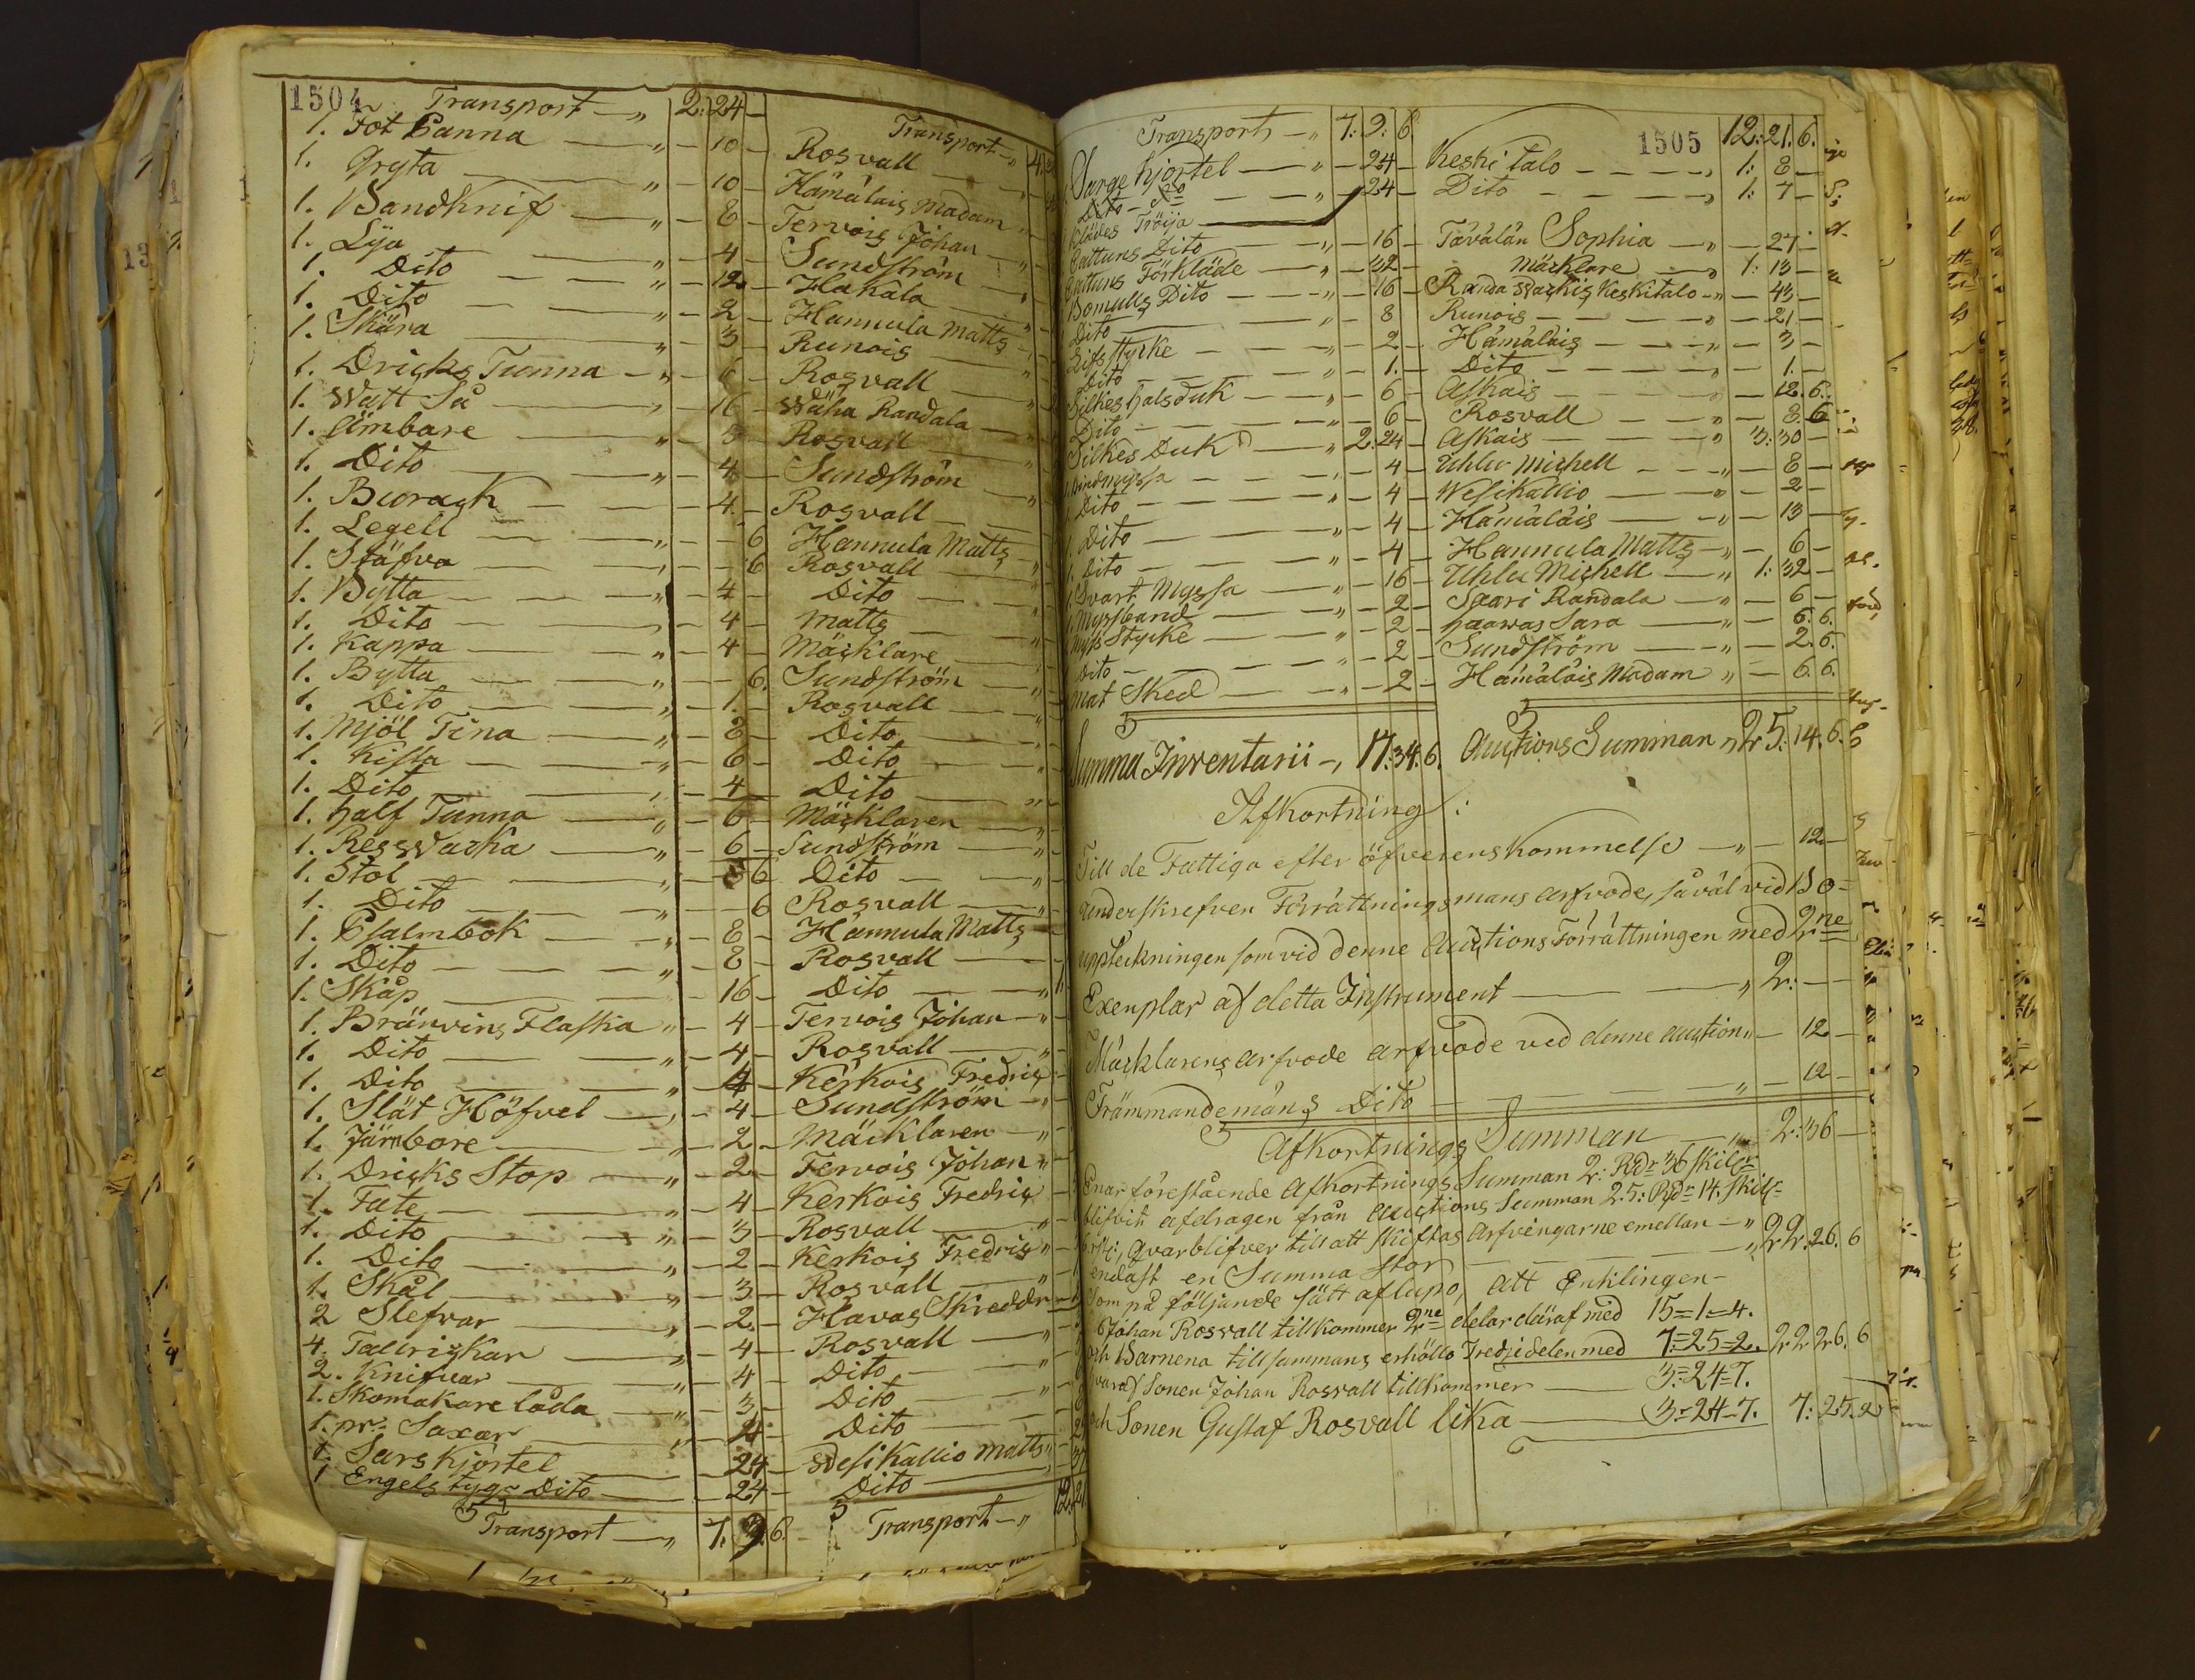 1504 Transport — „ 2: 24 — Transport „ 4.
1. Fot Panna — „ — 10 — Rosvall
1. Gryta — „ — 10 — Hämäläis Madam
1. Bandknif — „ — 8 — Tervois Johan
1. Lya — „ — 4 — Sundström
1. Dito — „ — 12 — Hakala
1. Dito — „ — 2 — Hannula Matts
1. Skära — „ — 3 — Runois
1. Dricks Tunna — „ — 6 — Rosvall
1. Watt Så — „ — 16 — Wäha Randala
1. Ämbare — „ — 3 — Rosvall
1. Dito — „ — 4 — Sundström
1. — 4 — Rosvall
1. Legell — „ — 6 Hannula Matts
1. Stäfva — „ — 6 Rosvall
1. Bytta — „ — 4 — Dito
1. Dito — „ — 4 — Matts
1. Kappa — „ — 4 — Mäcklare
1. Bytta — „ — 6. Sundström
1. Dito — „ — 1. — Rosvall
1. Mjöl Tina — „ — 8 — Dito
1. Kista — „ — 6 — Dito
1. Dito — „ — 4 — Dito
1. half Tunna — „ — 6 — Mäcklaren
1. — „ — 6 — Sundström
1. Stol — „ — 6 Dito
1. Dito — „ — 6 Rosvall
1. Psalmbok — „ — 8 — Hannula Matts
1. Dito — „ — 8 — Rosvall
1. Skåp — 16 — Dito
1. Bränvins Flaska „ — 4 — Tervois Johan
1. Dito — „ — 4 — Rosvall
1. Dito — „ — 4 — Kerkois Fredric
1. Slät Höfvel — „ — 4 — Sundström
1. Järnbore — „ — 2 — Mäcklaren
1. Dricks Stop — „ — 2 — Tervois Johan
1. Fate — „ — 4 — Kerkois Fredric
1. Dito — „ — 3 — Rosvall
1. Dito — „ — 2 — Kerkois Fredric
1. Skål — „ — 3 — Rosvall
2 Slefvar — „ — 2 — Havas Skreddr
4. Tallrickar — „ — 4 — Rosvall
2. Knifvar — „ — 4 — Dito
1. Skomakare låda — „ — 3 — Dito
1. pr. Saxar — „ — 4 — Dito
1. Sars Kjortel — 24 — Wesikallio Matts
1 Engels tygs Dito — 24 — Dito
Transport — „ 7. 9. 6. Transport — „ 12. 21
Transport — „ 7: 9: 6 1505 12: 21. 6.
Sarge Kjortel — „ — 24 — Keski talo — „ 1: 8 —
Dito — „ — 24 — Dito — „ 1: 7 —
Klädes Tröija
Cattuns Dito — „ — 16 — Tävälän Sophia — „ — 27 —
Cattuns Förkläde — „ — 32 — Mäcklare — „ 1: 13 —
Bomulls Dito — „ — 16 — Keskitalo — „ — 43 —
Dito — „ — 8 Runois — „ — 21 —
Lifstycke — „ — 2 — Hämäläis — „ — 3 —
Dito — „ — 1. — Dito — „ — 1. —
Silkes halsduk — „ — 6 — Askais — „ — 12. 6.
Dito — „ — 6 — Rosvall — „ — 8. 6
Silkes Duk — „ 2: 24 — Askais — „ 3: 30 —
Bindmyssa — „ — 4 — Uhlu Michell — „ — 8 —
1. Dito — „ — 4 — Wesikallio — „ — 2 —
1. Dito — „ — 4 — Hämäläis — „ — 13 —
1. Dito — „ — 4 — Hannula Matts — „ — 6 —
1. Svart Myssa — „ — 16 — Uhlu Michell — „ 1: 32 —
1. Myssband — „ — 2 — Saari Randala — „ — 6 —
Myss Stycke — „ — 2 — Haawas Sara — „ — 6. 6.
Dito — „ — 2 — Sundström — „ — 2. 6.
Mat Sked — „ — 2 — Hämäläis Madam „ — 6. 6.
Summa Inventarii —, 17: 34. 6. Auctions Summan „ 25: 14. 6.
Afkortning:
Till de Fattiga efter öfverenskommelse — „ — 12 —
Underskrefven Förrättningsmans arfvode, såväl vid Bo=
uppteckningen som vid denne Auctions Förrättningen med 2ne
Exenplar af detta Instrument — „ 2: — —
Mäcklarens arfvode arfvode ved denne auction „ — 12 —
Främmandemäns Dito — „ — 12 —
Afkortnings Summan — „ 2: 36 —
Enär förestående Afkortnings Summan 2: Rdr 36 skillr
blifvit afdragen från Auctions Summan 25: Rdr 14. skill=
Qvarblifver till att skiftas Arfvingarne emellan — „
endast en Summa stor — „ 22: 26. 6
Som på följande sätt aflupo, att Enklingen —
Johan Rosvall tillkommer 2ne delar däraf med 15=1=4.
och Barnena tillsammans erhålla Tredjedelen med 7=25=2. 22 26. 6
hvaraf Sonen Johan Rosvall tillkommer — 3=24=7.
och Sonen Gustaf Rosvall lika — 3=24=7. 7: 25. 2